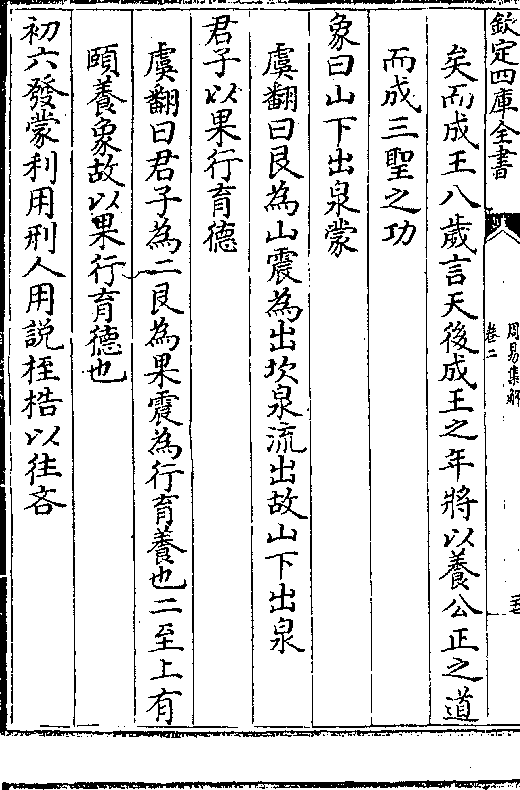 欽定四庫全書
周易集解
卷二
矣而成王八歲言天後成王之年將以養公正之道
而成三聖之功
象曰山下出泉蒙
虞翻曰艮為山震為出坎泉流出故山下出泉
君子以果行育德
虞翻曰君子為二艮為果震為行育養也二至上有
頤養象故以果行育德也
初六發蒙利用刑人用説桎梏以往吝